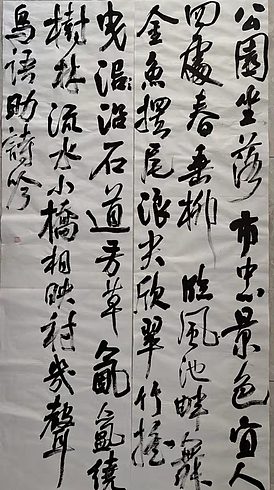 公園坐落市中心景色宜人
四處春垂柳臨風池畔舞
金魚擺尾浪尖欣翠竹搖
曳沿沿石道芳草氤氳繞
樹林流水小橋相映衬幾聲
鳥語助詩吟